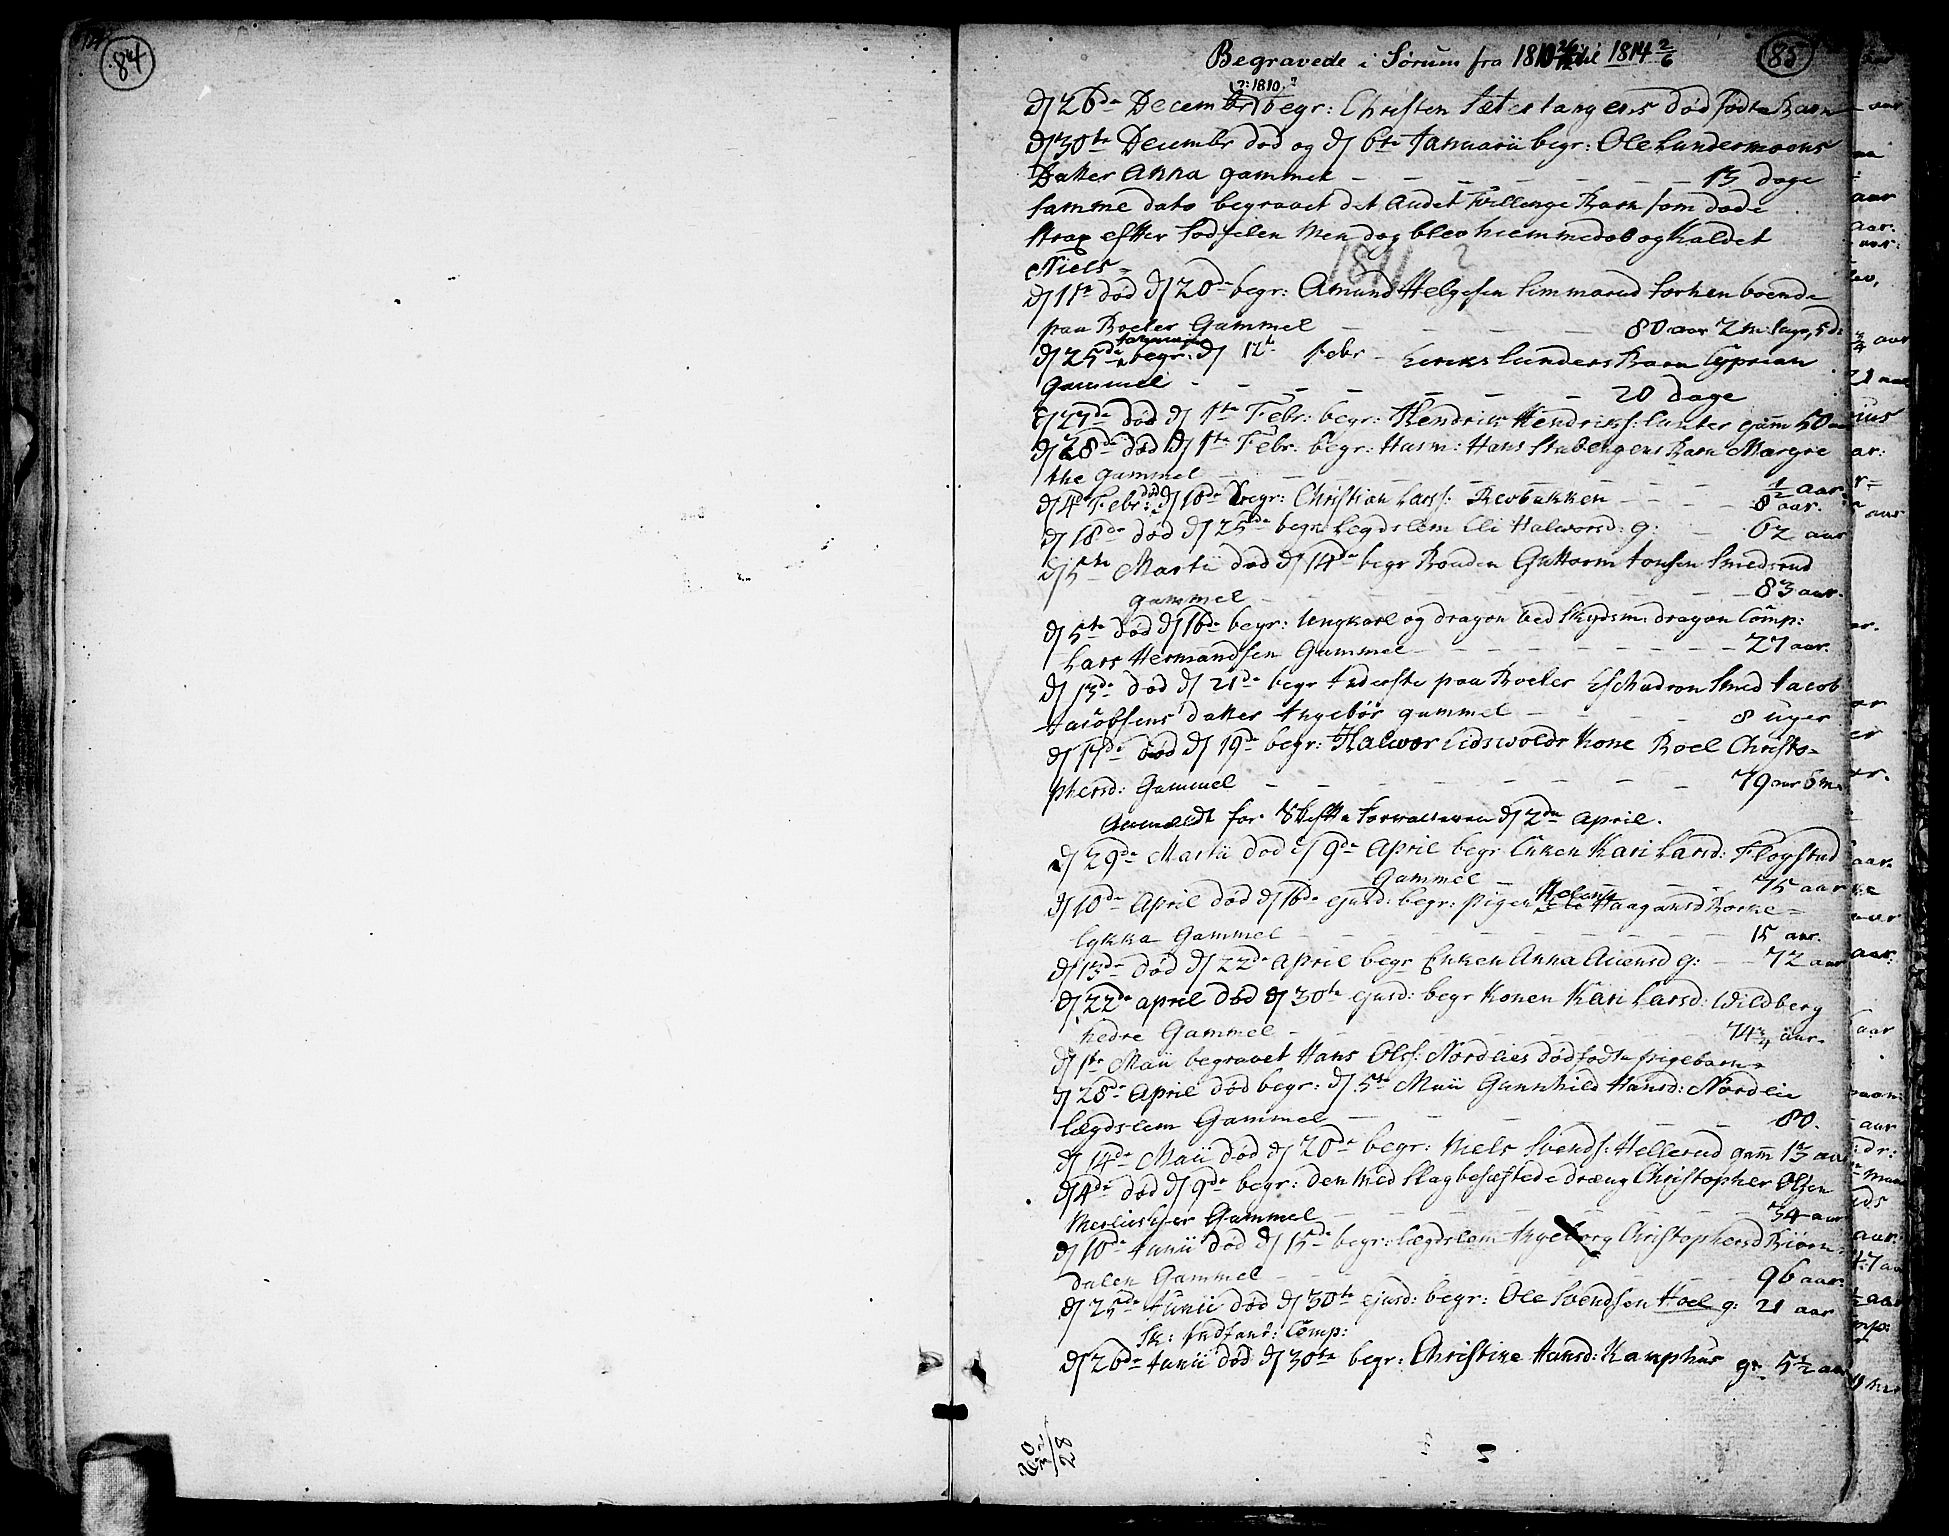 84
Begravede i Sørum fra 1810 26/12 til 1814 2/6
85
(?: 1810.?
d 26de Decembr begr: Christen Sætertangens død fødte Barn
d 30te Decembr død og d 6te Januarii begr: Ole Lundermoens
Datter Anna gammel — 13 dage
samme dato begravet det Andet Tvillenge Barn som døde
strax efter Fødselen Men dog blev hiemmedøbt og Kaldet
Niels
1811 ?
d 11te død d 20de begr: Amund Helgesen Simmarud forhen boende
paa Roeler Gammel — 80 aar 2 m:
d 25de begr: d 12te Febr — Lunders Barn Cyprian
Gammel — 20 dage
d 27de død d 1te Febr: begr: Hendrik Hendriks: gam 50
d 28de død d 1te Febr: begr: Husm: Hans Stabengens Barn Margre
the gammel — 1/2 aar
d 4de Febr: død d 10de begr: Christian Larss: Revbakken — 8 aar.
d 18de død d 25de begr: Legdslem Eli Halworsd: g: — 62 aar
d 5te Martii død d 14de begr Bonden Guttorm Jonsen Smedsrud
gammel — 83 aar.
d 5te død d 16de begr: Ungkarl og dragon ved Skydsm: dragon Comp:
Lars Hermandsen Gammel — 27 aar.
d 13de død d 21de begr Inderste paa Roeler Eschadron Smed Jacob
Jacobsens datter Ingebor gammel — 8 uger
d 17de død d 19de begr: Halwor Eidswolds Kone Roel Christo=
phersd: Gammel — 79 aar 6 m.
Anmeldt for Skifte Forvalteren d 2den April.
d 29de Martii død d 9de April begr Enken Kari Larsd: Fløgstud
Gammel — 75 aar
d 10de April død d 16de ejusd: begr: pigen Helene Haagansd Borke=
lykka Gammel — 15 aar.
d 13de død d 22de April begr Enken Anna Auensd g: — 72 aar
d 22de april død d 30te ejusd: begr Konen Kari Larsd: Wildberg
nedre Gammel — 74 3/4 aar.
d 1te Maii begravet Hans Olss: Nordlies dødfødte pigebarn
d 28de April død begr: d 5te Maii Gunnhild Hansd: Nordlie
Lægdslem Gammel — 80.
d 14de Maii død d 20de begr: Niels Svends: Hellerud gam 13 aar
d 4de død d 9de begr: den med Slag besæftede dræng Christopher Olsen
Gammel — 34 aar
d 10de Junii død d 15de begr: Lægdslem Ingeborg Christophersd Biørn=
dalen Gammel — 96 aar.
d 25de Junii død d 30te ejusd: begr: Ole Svendsen Hoel g: 21 aar
Sk: Indfant: Comp:
d 26de Junii død d 30te begr: Christine Hansd: Kamphus g: 5 1/2 aar
28